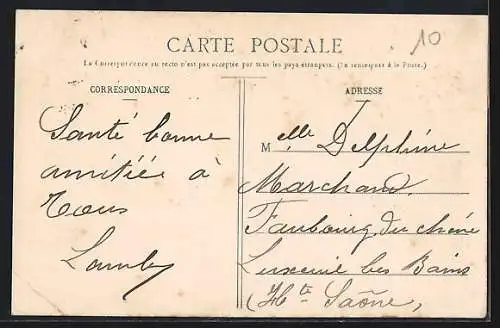 10
CARTE POSTALE
La Correspondance au recto n'est pas acceptée par tous les pays étrangers. (Se renseigner à la Poste.)
CORRESPONDANCE
Santé bonne
amitiée à
Tous
ADRESSE
Melle Delphine
Marchand
Faubourg du chêne
Luxeuil les Bains
(Hte Saône,